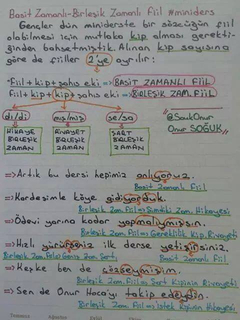 Basit Zamanlı-Birleşik Zamanlı Fiil #miniders
Gençler dün miniderste bir sözcüğün fiil
olabilmesi için mutlaka kip alması gerekti-
ğinden bahsetmiştik. Alınan kip sayısına
göre de fiiller 2'ye ayrılır:
Fiil+kip+şahıs eki => BASİT ZAMANLI FİİL
Fiil+kip+kip+şahıs eki => BİRLEŞİK ZAM. FİİL
@SoukOnur
Onur SOĞUK
dı/di mış/miş sa/se
HİKAYE BİRLEŞİK ZAMAN
RİVAYET BİRLEŞİK ZAMAN
ŞART BİRLEŞİK ZAMAN
=> Artık bu dersi hepimiz anlıyoruz.
Basit Zamanlı Fiil
=> Kardeşimle köye gidiyorduk.
Birleşik Zam. Fiil => Şimdiki Zam. Hikayesi
=> Ödevi yarına kadar yapmalıymışsın.
Birleşik Zam. Fiil => Gereklilik Kip. Rivayeti
=> Hızlı yürürseniz ilk derse yetişirsiniz.
Birleşik Zam. Fiil => Geniş Zam. Şart Basit Zamanlı Fiil
=> Keşke ben de çözseymişim.
Birleşik Zam. Fiil => Şart Kipinin Rivayeti
=> Sen de Onur Hoca'yı takip edeydin.
Birleşik Zam. Fiil => İstek Kipinin Hikayesi